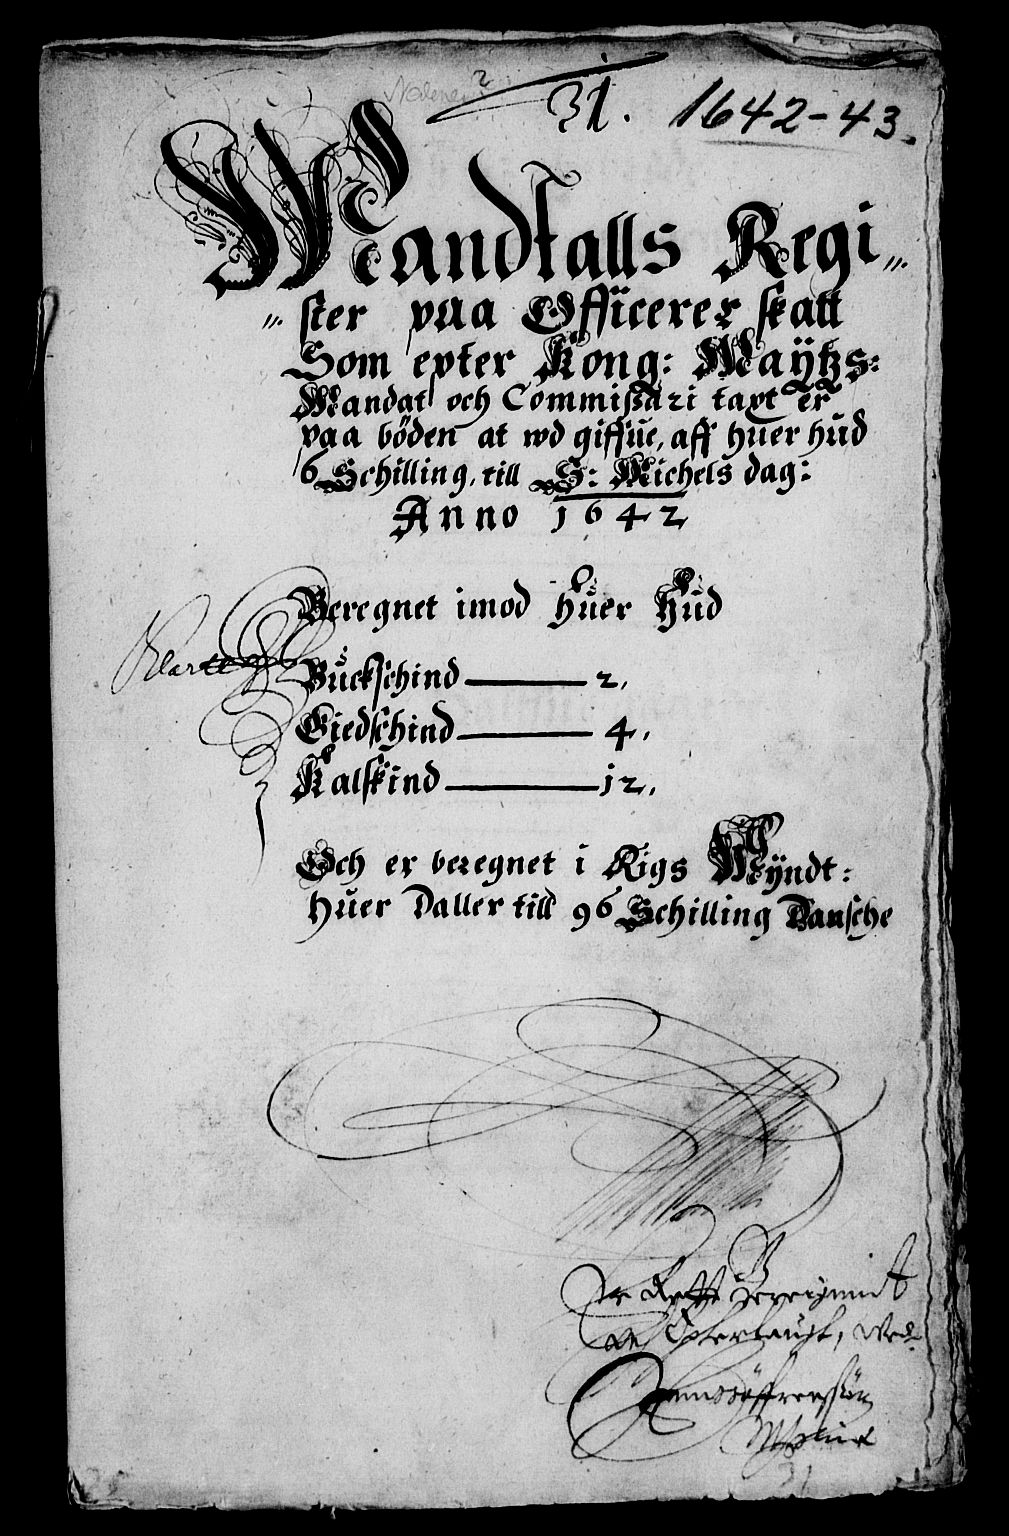 31. 1642-43.
Mandtalls Regi„
„ster paa Officerer skatt
Som epter Kong: Maÿtzs:
Mandat och Commissari taxt er
paa böden at wd giffue, aff huer hud
6 Schilling, till S: Michels dag:
Anno 1642
Beregnet imod huer Hud
Buckschind 2,
Giedschind 4,
Kalfskind 12,
Och er beregnet i Rigs Mÿndt:
Huer Daller till 96 Schilling Dansche
31